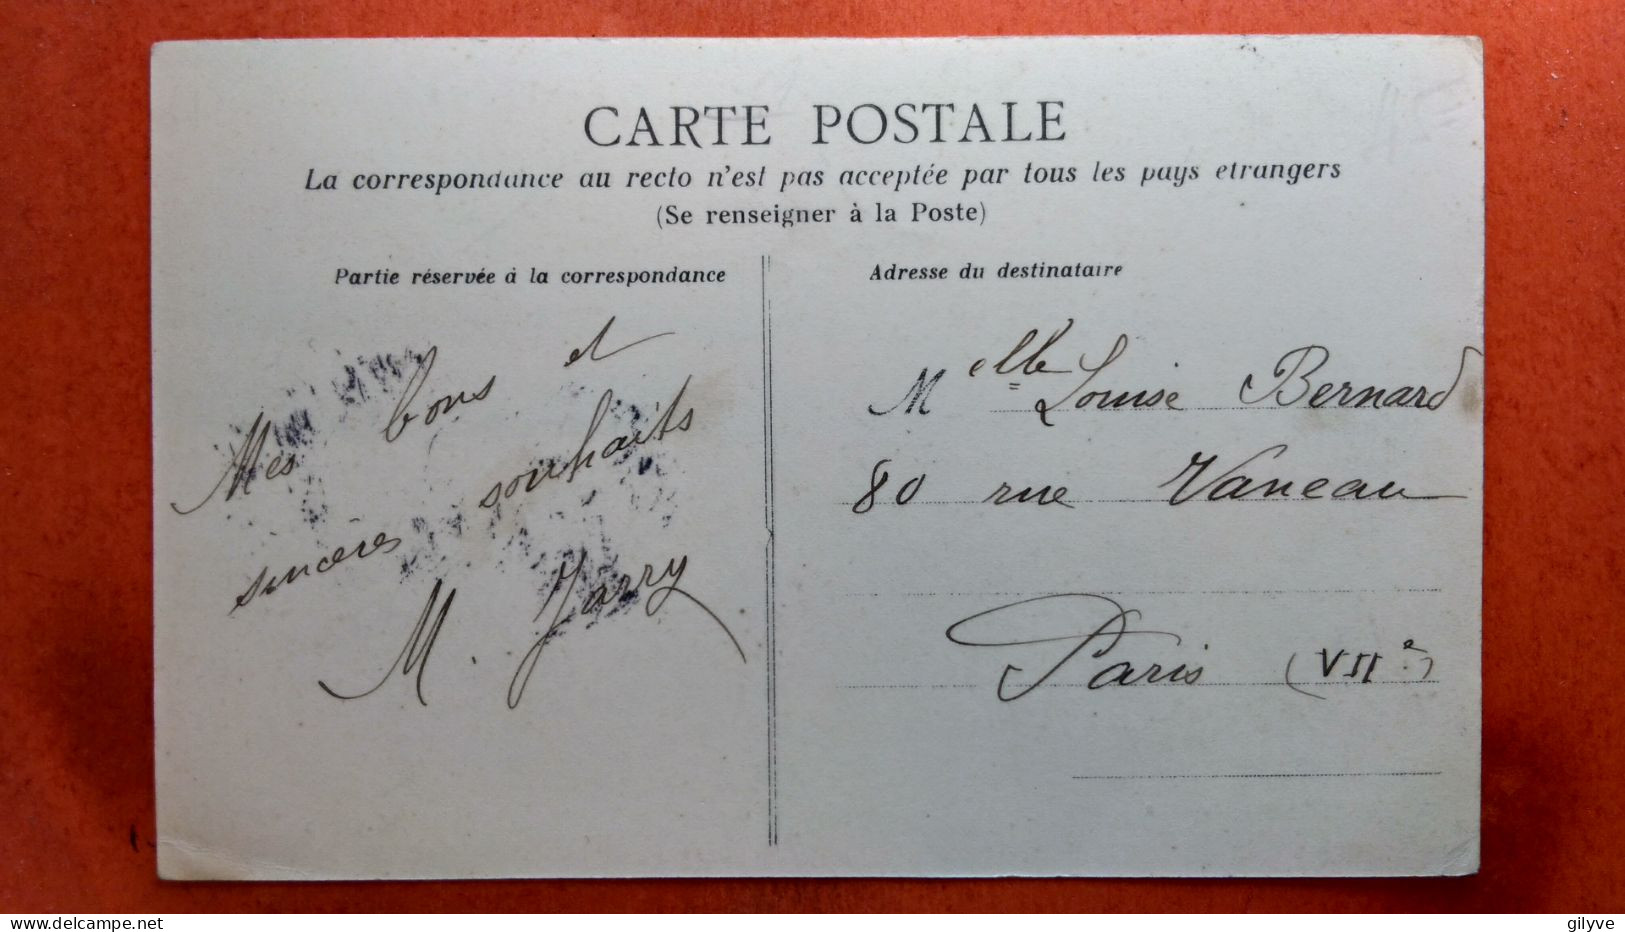 CARTE POSTALE
La correspondance au recto n'est pas acceptée par tous les pays etrangers
(Se renseigner à la Poste)
Partie réservée à la correspondance
Mes bons et
sincères souhaits
M. Jarry
Adresse du destinataire
Melle Louise Bernard
80 rue Vaneau
Paris (VIIe)
gilyve